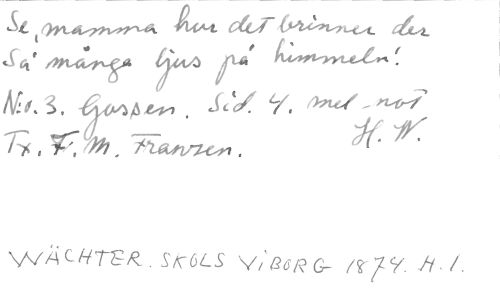 Se, mamma hur det brinner der
Så många ljus på himmeln!
N:o. 3. Gossen. Sid. 4. mel-not
H. W.
Tx. F. M. Franzen.
WÄCHTER. SKOLS VIBORG 1874. H. I.